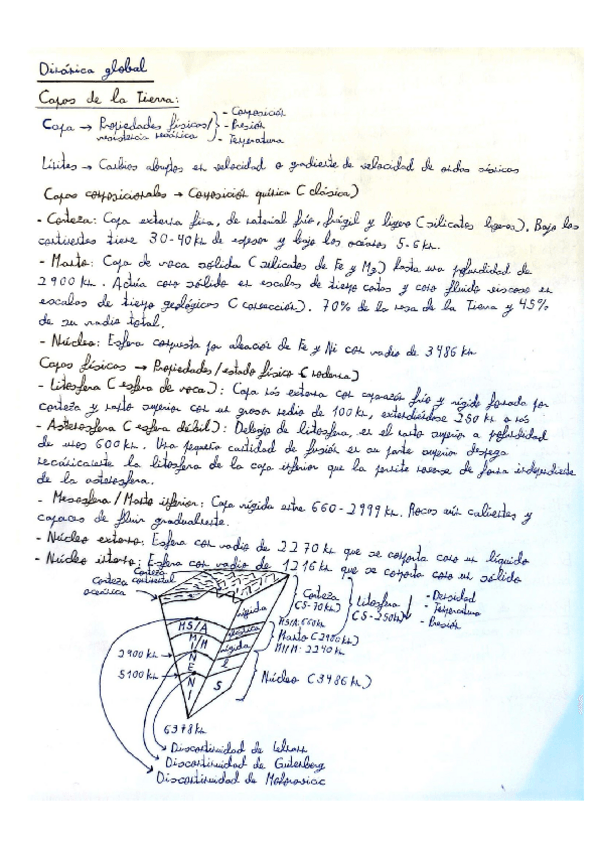 Dinámica global
Capas de la Tierra:
Capa → Propiedades físicas/ - Composición
resistencia mecánica - Presión
- Temperatura
Límites → Cambios abruptos en velocidad o gradiente de velocidad de ondas sísmicas
Capas composicionales → Composición química (clásica)
- Corteza: Capa externa fina, de material frío, frágil y ligero (silicatos ligeros). Bajo los
continentes tiene 30-40 km de espesor y bajo los océanos 5-6 km.
- Manto: Capa de roca sólida (silicatos de Fe y Mg) hasta una profundidad de
2900 km. Actúa como sólido en escalas de tiempo cortas y como fluido viscoso en
escalas de tiempo geológicos (convección). 70% de la masa de la Tierra y 45%
de su radio total.
- Núcleo: Esfera compuesta por aleación de Fe y Ni con radio de 3486 km
Capas físicas → Propiedades/estado físico (moderna)
- Litosfera (esfera de roca): Capa más externa con caparazón frío y rígido formada por
corteza y manto superior con un grosor medio de 100 km, extendiéndose 250 km o más
- Astenosfera (esfera débil): Debajo de litosfera, en el manto superior a profundidad
de unos 600 km. Una pequeña cantidad de fusión en su parte superior despega
mecánicamente la litosfera de la capa inferior que la permite moverse de forma independiente
de la astenosfera.
- Mesosfera/Manto inferior: Capa rígida entre 660-2999 km. Rocas aún calientes y
capaces de fluir gradualmente.
- Núcleo externo: Esfera con radio de 2270 km que se comporta como un líquido
- Núcleo interno: Esfera con radio de 1216 km que se comporta como un sólido
Corteza
continental
Corteza
oceánica
rígida
Corteza
(5-70 km)
Litosfera
(5-250 km)
- Densidad
- Temperatura
- Presión
MS/A
plástica
MS/A: 660 km
Manto (2900 km)
M/M: 2240 km
M
I/M
rígida
2900 km →
N
E
l
5100 km →
N
I
S
Núcleo (3486 km)
6378 km
Discontinuidad de Lehmann
Discontinuidad de Gutenberg
Discontinuidad de Mohorovicic